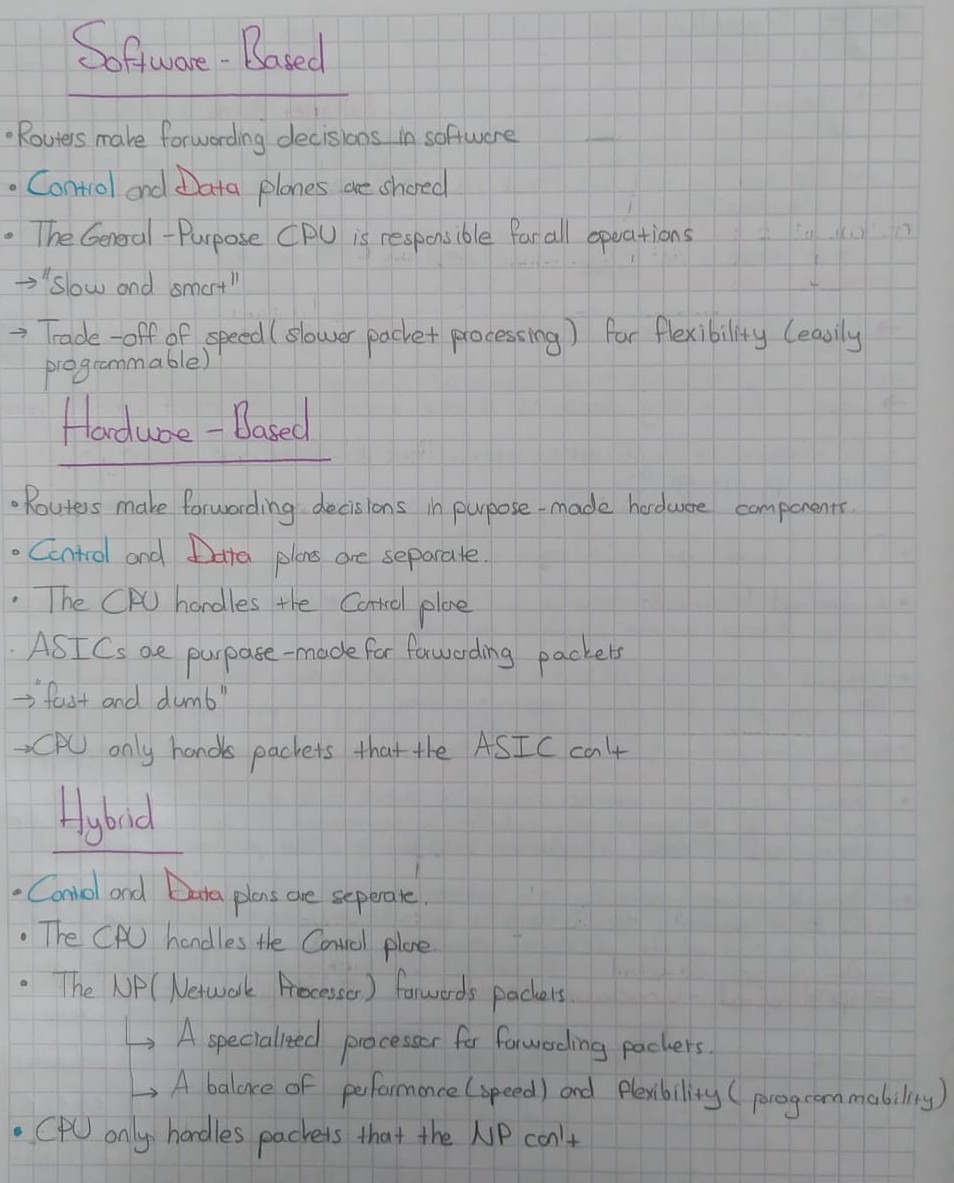 Software - Based
• Routers make forwarding decisions in software
• Control and Data planes are shared
• The General-Purpose CPU is responsible for all operations
→ "Slow and smart"
→ Trade-off of speed (slower packet processing) for flexibility (easily
programmable)
Hardware - Based
• Routers make forwarding decisions in purpose-made hardware components.
• Control and Data plans are separate.
• The CPU handles the Control plane
· ASICs are purpose-made for forwarding packets
→ "fast and dumb"
→ CPU only handls packets that the ASIC can't
Hybrid
• Control and Data plans are seperate.
• The CPU handles the Control plane
• The NP (Network Processor) forwards packets.
↳ A specialized processor for forwarding packets.
↳ A balance of performance (speed) and flexibility (programmability)
• CPU only handles packets that the NP can't